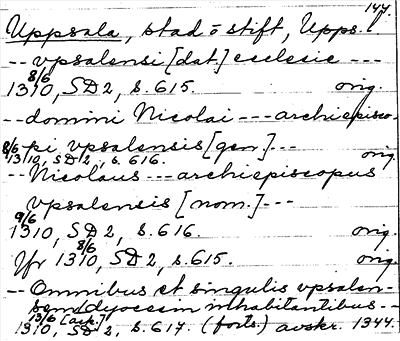 144.
Uppsala, stad o stift, Upps.l.
-- vpsalensi [dat.] ecclesie ---
8/6
1310, SD 2, s. 615. orig.
-- domini Nicolai --- archiepisco-
pi vpsalensis [gen.] ---
8/6 1310, SD 2, s. 616. orig.
-- Nicolaus --- archiepiscopus
vpsalensis [nom.] ---
9/6
1310, SD 2, s. 616. orig.
8/6
Jfr 1310, SD 2, s. 615. orig.
-- Omnibus et singulis vpsalen-
sem dyocesim inhabitantibus --
13/6 [ank.?]
1310, SD 2, s. 617. (forts.) avskr. 1344.